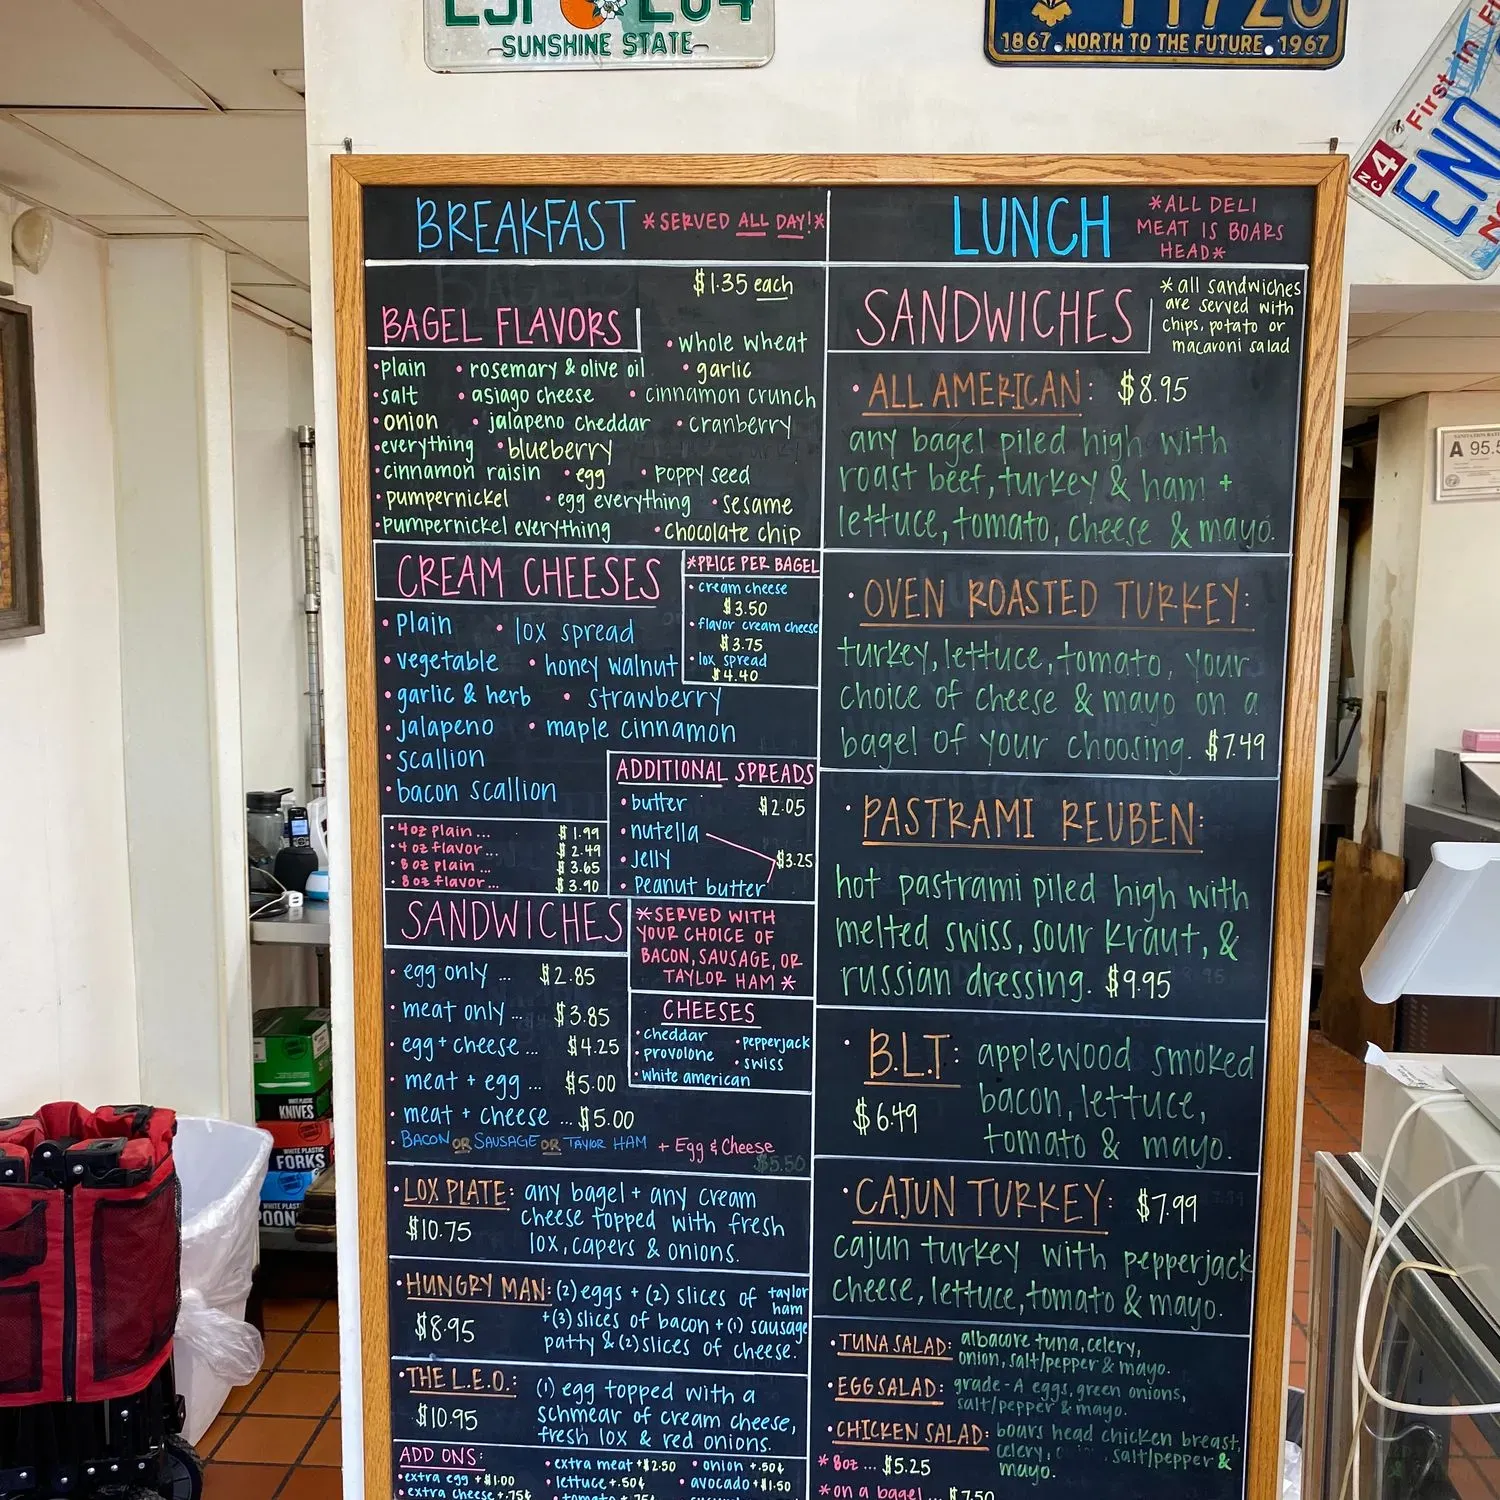 SUNSHINE STATE
1867 NORTH TO THE FUTURE 1967
First in
NC
4
END
A 95.5
BREAKFAST *SERVED ALL DAY!*
$1.35 each
BAGEL FLAVORS
• whole wheat
• plain • rosemary & olive oil • garlic
• salt • asiago cheese • cinnamon crunch
• onion • jalapeno cheddar • cranberry
• everything • blueberry
• cinnamon raisin • egg • poppy seed
• pumpernickel • egg everything • sesame
• pumpernickel everything • chocolate chip
CREAM CHEESES
• plain • lox spread
• vegetable • honey walnut
• garlic & herb • strawberry
• jalapeno • maple cinnamon
• scallion
• bacon scallion
*PRICE PER BAGEL
• cream cheese
$3.50
• flavor cream cheese
$3.75
• lox spread
$4.40
• 4oz plain... $1.99
• 4oz flavor... $2.49
• 8oz plain... $3.65
• 8oz flavor... $3.90
ADDITIONAL SPREADS
• butter $2.05
• nutella
• Jelly $3.25
• Peanut butter
SANDWICHES
*SERVED WITH
YOUR CHOICE OF
BACON, SAUSAGE, OR
TAYLOR HAM *
• egg only ... $2.85
• meat only ... $3.85
• egg + cheese ... $4.25
• meat + egg ... $5.00
• meat + cheese ... $5.00
• BACON OR SAUSAGE OR TAYLOR HAM + Egg & Cheese
$5.50
CHEESES
• cheddar • pepperjack
• provolone • swiss
• white american
• LOX PLATE: any bagel + any cream
$10.75 cheese topped with fresh
lox, capers & onions.
• HUNGRY MAN: (2) eggs + (2) slices of taylor
ham
$8.95 + (3) slices of bacon + (1) sausage
patty & (2) slices of cheese.
• THE L.E.O.: (1) egg topped with a
$10.95 schmear of cream cheese,
fresh lox & red onions.
ADD ONS:
• extra meat +$2.50 • onion +.50¢
• extra egg +$1.00 • lettuce +.50¢ • avocado +$1.50
• extra cheese +.75¢ • tomato +.75¢
LUNCH *ALL DELI
MEAT IS BOARS
HEAD*
SANDWICHES
*all sandwiches
are served with
chips, potato or
macaroni salad
• ALL AMERICAN: $8.95
any bagel piled high with
roast beef, turkey & ham +
lettuce, tomato, cheese & mayo.
• OVEN ROASTED TURKEY:
turkey, lettuce, tomato, your
choice of cheese & mayo on a
bagel of your choosing. $7.49
• PASTRAMI REUBEN:
hot pastrami piled high with
melted swiss, sour kraut, &
russian dressing. $9.95
• B.L.T: applewood smoked
$6.49 bacon, lettuce,
tomato & mayo.
• CAJUN TURKEY: $7.99
cajun turkey with pepperjack
cheese, lettuce, tomato & mayo.
• TUNA SALAD: albacore tuna, celery,
onion, salt/pepper & mayo.
• EGG SALAD: grade-A eggs, green onions,
salt/pepper & mayo.
• CHICKEN SALAD: boars head chicken breast,
celery, salt/pepper &
mayo.
* 8oz ... $5.25
* on a bagel ... $7.50
WHITE PLASTIC
KNIVES
WHITE PLASTIC
FORKS
WHITE PLAST
POON